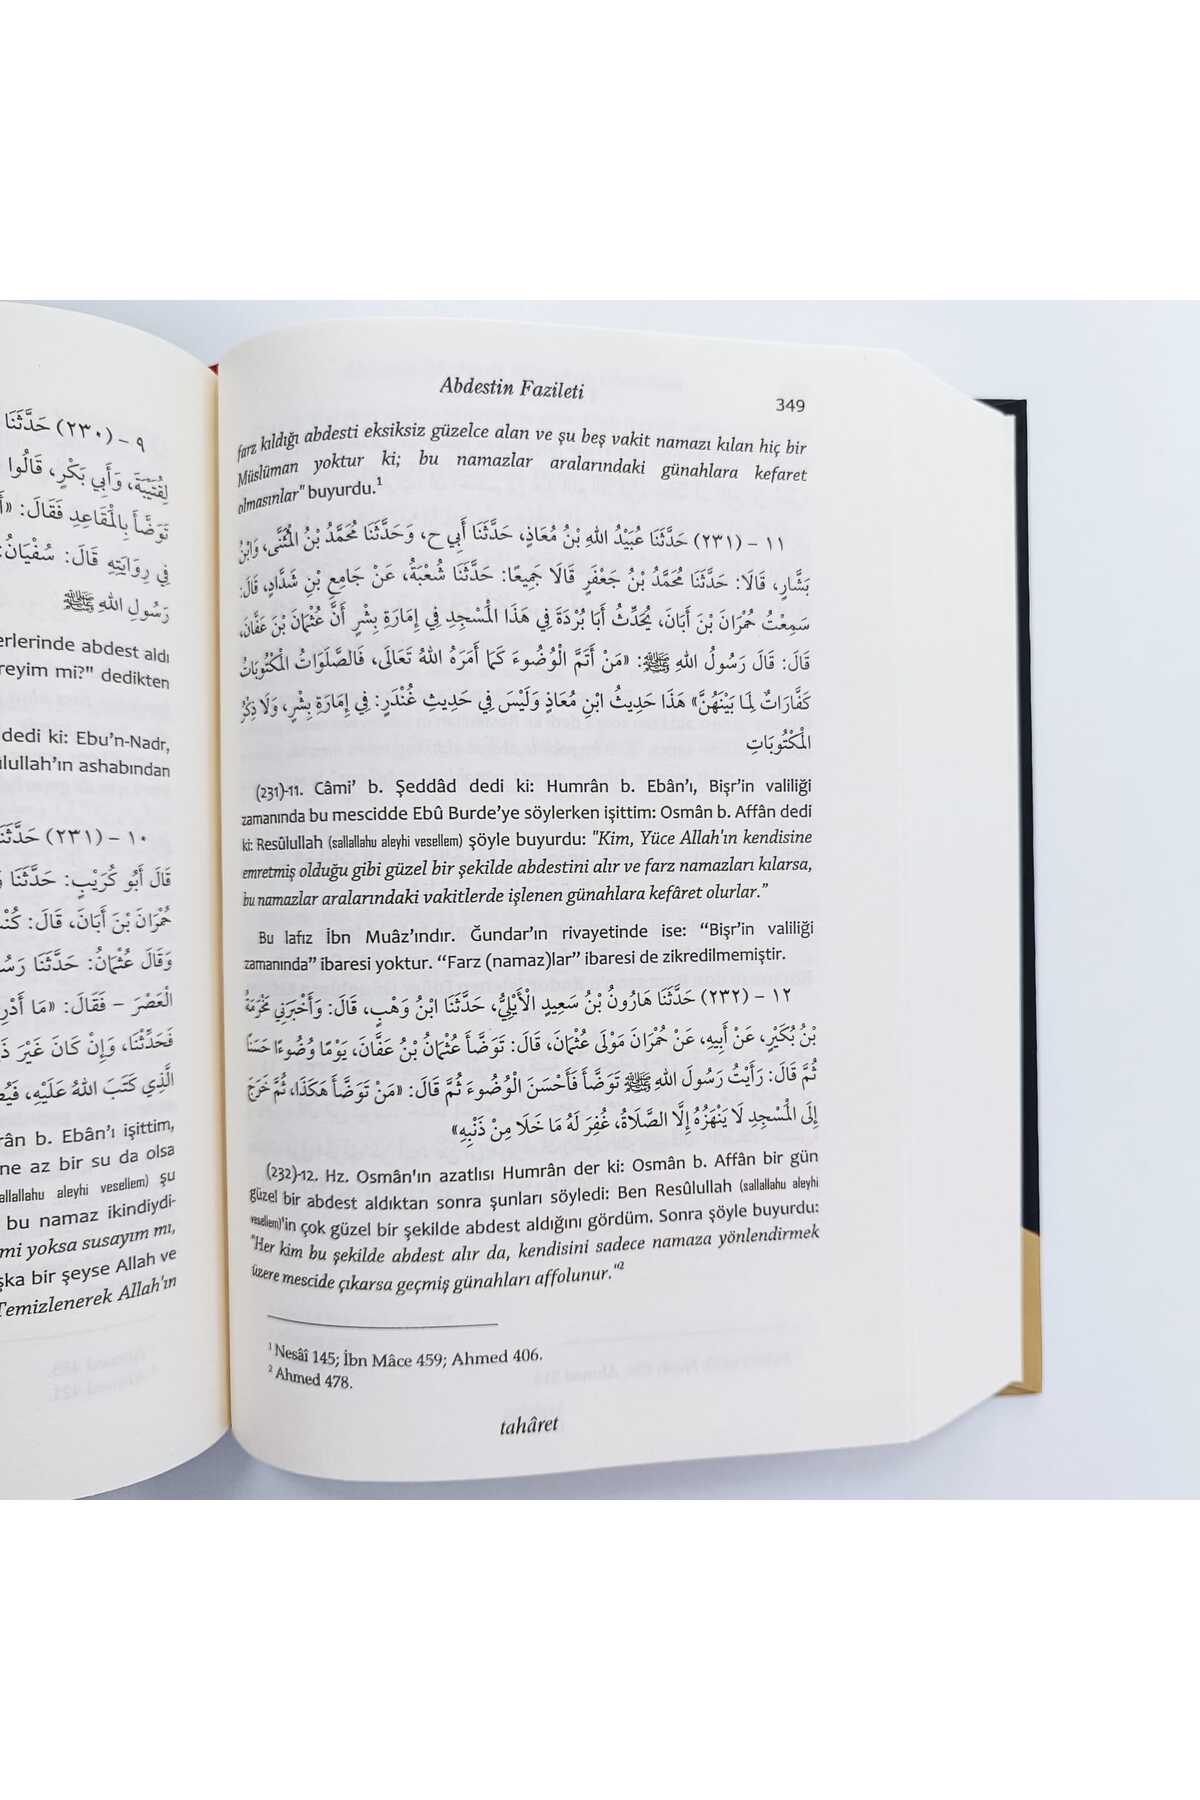 ٩ - (٢٣٠) حَدَّثَنَا
لِقُتَيْبَةَ، وَأَبِي بَكْرٍ، قَالُوا
تَوَضَّأَ بِالْمَقَاعِدِ فَقَالَ:
فِي رِوَايَتِهِ قَالَ: سُفْيَانُ:
رَسُولِ اللهِ ﷺ
erlerinde abdest aldı
reyim mi?" dedikten
dedi ki: Ebu'n-Nadr,
ûlullah'ın ashabından
١٠ - (٢٣١) حَدَّثَنَا
قَالَ أَبُو كُرَيْبٍ: حَدَّثَنَا
حُمْرَانَ بْنَ أَبَانَ، قَالَ:
وَقَالَ عُثْمَانُ: حَدَّثَنَا
الْعَصْرَ - فَقَالَ: «مَا
فَحَدِّثْنَا، وَإِنْ كَانَ غَيْرَ
الَّذِي كَتَبَ اللهُ عَلَيْهِ،
rân b. Ebân'ı işittim,
ne az bir su da olsa
allallahu aleyhi vesellem) şu
bu namaz ikindiydi-
mi yoksa susayım mı,
şka bir şeyse Allah ve
Temizlenerek Allah'ın
Abdestin Fazileti
349
farz kıldığı abdesti eksiksiz güzelce alan ve şu beş vakit namazı kılan hiç bir
Müslüman yoktur ki; bu namazlar aralarındaki günahlara kefaret
olmasınlar" buyurdu.¹
١١ - (٢٣١) حَدَّثَنَا عُبَيْدُ اللهِ بْنُ مُعَاذٍ، حَدَّثَنَا أَبِي ح، وَحَدَّثَنَا مُحَمَّدُ بْنُ الْمُثَنَّى، وَابْنُ
بَشَّارٍ، قَالَا: حَدَّثَنَا مُحَمَّدُ بْنُ جَعْفَرٍ قَالَا جَمِيعًا: حَدَّثَنَا شُعْبَةُ، عَنْ جَامِعِ بْنِ شَدَّادٍ، قَالَ:
سَمِعْتُ حُمْرَانَ بْنَ أَبَانَ، يُحَدِّثُ أَبَا بُرْدَةَ فِي هَذَا الْمَسْجِدِ فِي إِمَارَةِ بِشْرٍ أَنَّ عُثْمَانَ بْنَ عَفَّانَ،
قَالَ: قَالَ رَسُولُ اللهِ ﷺ: «مَنْ أَتَمَّ الْوُضُوءَ كَمَا أَمَرَهُ اللهُ تَعَالَى، فَالصَّلَوَاتُ الْمَكْتُوبَاتُ
كَفَّارَاتٌ لِمَا بَيْنَهُنَّ» هَذَا حَدِيثُ ابْنِ مُعَاذٍ وَلَيْسَ فِي حَدِيثِ غُنْدَرٍ: فِي إِمَارَةِ بِشْرٍ، وَلَا ذِكْرُ
الْمَكْتُوبَاتِ
(231)-11. Câmi' b. Şeddâd dedi ki: Humrân b. Ebân'ı, Bişr'in valiliği
zamanında bu mescidde Ebû Burde'ye söylerken işittim: Osmân b. Affân dedi
ki: Resûlullah (sallallahu aleyhi vesellem) şöyle buyurdu: "Kim, Yüce Allah'ın kendisine
emretmiş olduğu gibi güzel bir şekilde abdestini alır ve farz namazları kılarsa,
bu namazlar aralarındaki vakitlerde işlenen günahlara kefâret olurlar."
Bu lafız İbn Muâz'ındır. Ğundar'ın rivayetinde ise: "Bişr'in valiliği
zamanında" ibaresi yoktur. "Farz (namaz)lar" ibaresi de zikredilmemiştir.
١٢ - (٢٣٢) حَدَّثَنَا هَارُونُ بْنُ سَعِيدٍ الْأَيْلِيُّ، حَدَّثَنَا ابْنُ وَهْبٍ، قَالَ: وَأَخْبَرَنِي مَخْرَمَةُ
بْنُ بُكَيْرٍ، عَنْ أَبِيهِ، عَنْ حُمْرَانَ مَوْلَى عُثْمَانَ، قَالَ: تَوَضَّأَ عُثْمَانُ بْنُ عَفَّانَ، يَوْمًا وُضُوءًا حَسَنًا
ثُمَّ قَالَ: رَأَيْتُ رَسُولَ اللهِ ﷺ تَوَضَّأَ فَأَحْسَنَ الْوُضُوءَ ثُمَّ قَالَ: «مَنْ تَوَضَّأَ هَكَذَا، ثُمَّ خَرَجَ
إِلَى الْمَسْجِدِ لَا يَنْهَزُهُ إِلَّا الصَّلَاةُ، غُفِرَ لَهُ مَا خَلَا مِنْ ذَنْبِهِ»
(232)-12. Hz. Osmân'ın azatlısı Humrân der ki: Osmân b. Affân bir gün
güzel bir abdest aldıktan sonra şunları söyledi: Ben Resûlullah (sallallahu aleyhi
vesellem)'in çok güzel bir şekilde abdest aldığını gördüm. Sonra şöyle buyurdu:
"Her kim bu şekilde abdest alır da, kendisini sadece namaza yönlendirmek
üzere mescide çıkarsa geçmiş günahları affolunur."²
¹ Nesâî 145; İbn Mâce 459; Ahmed 406.
² Ahmed 478.
tahâret